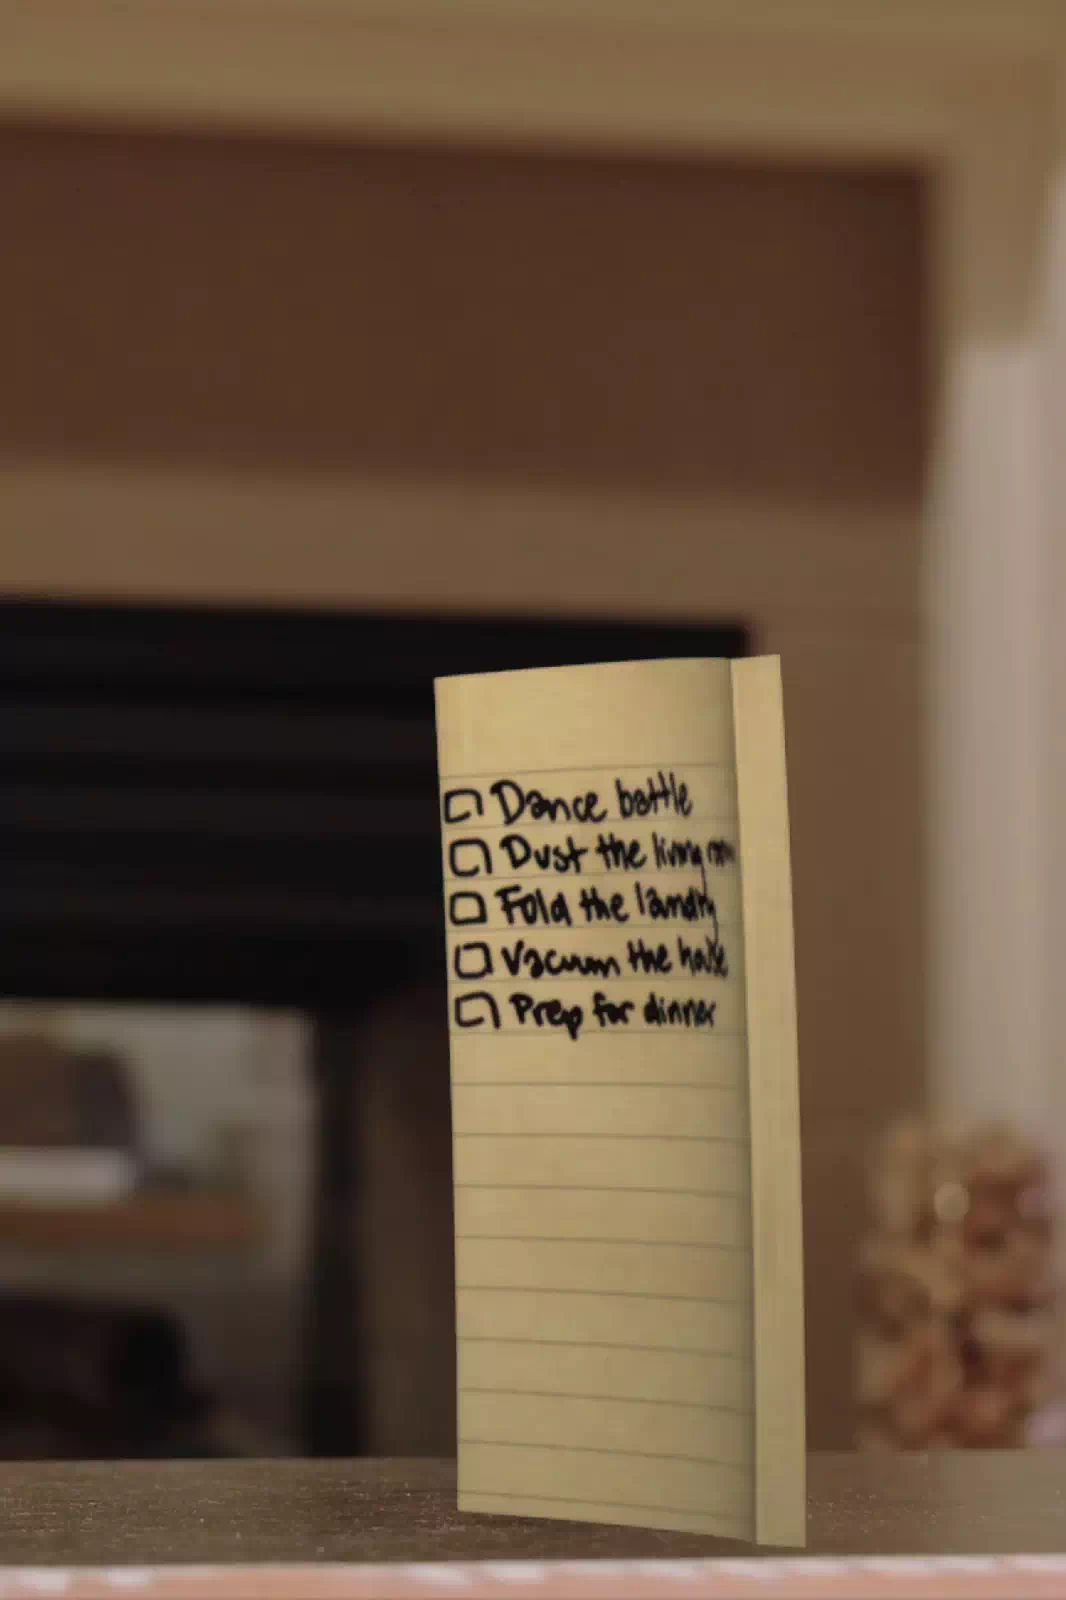 Dance battle
Dust the living room
Fold the landry
Vacuum the house
Prep for dinner